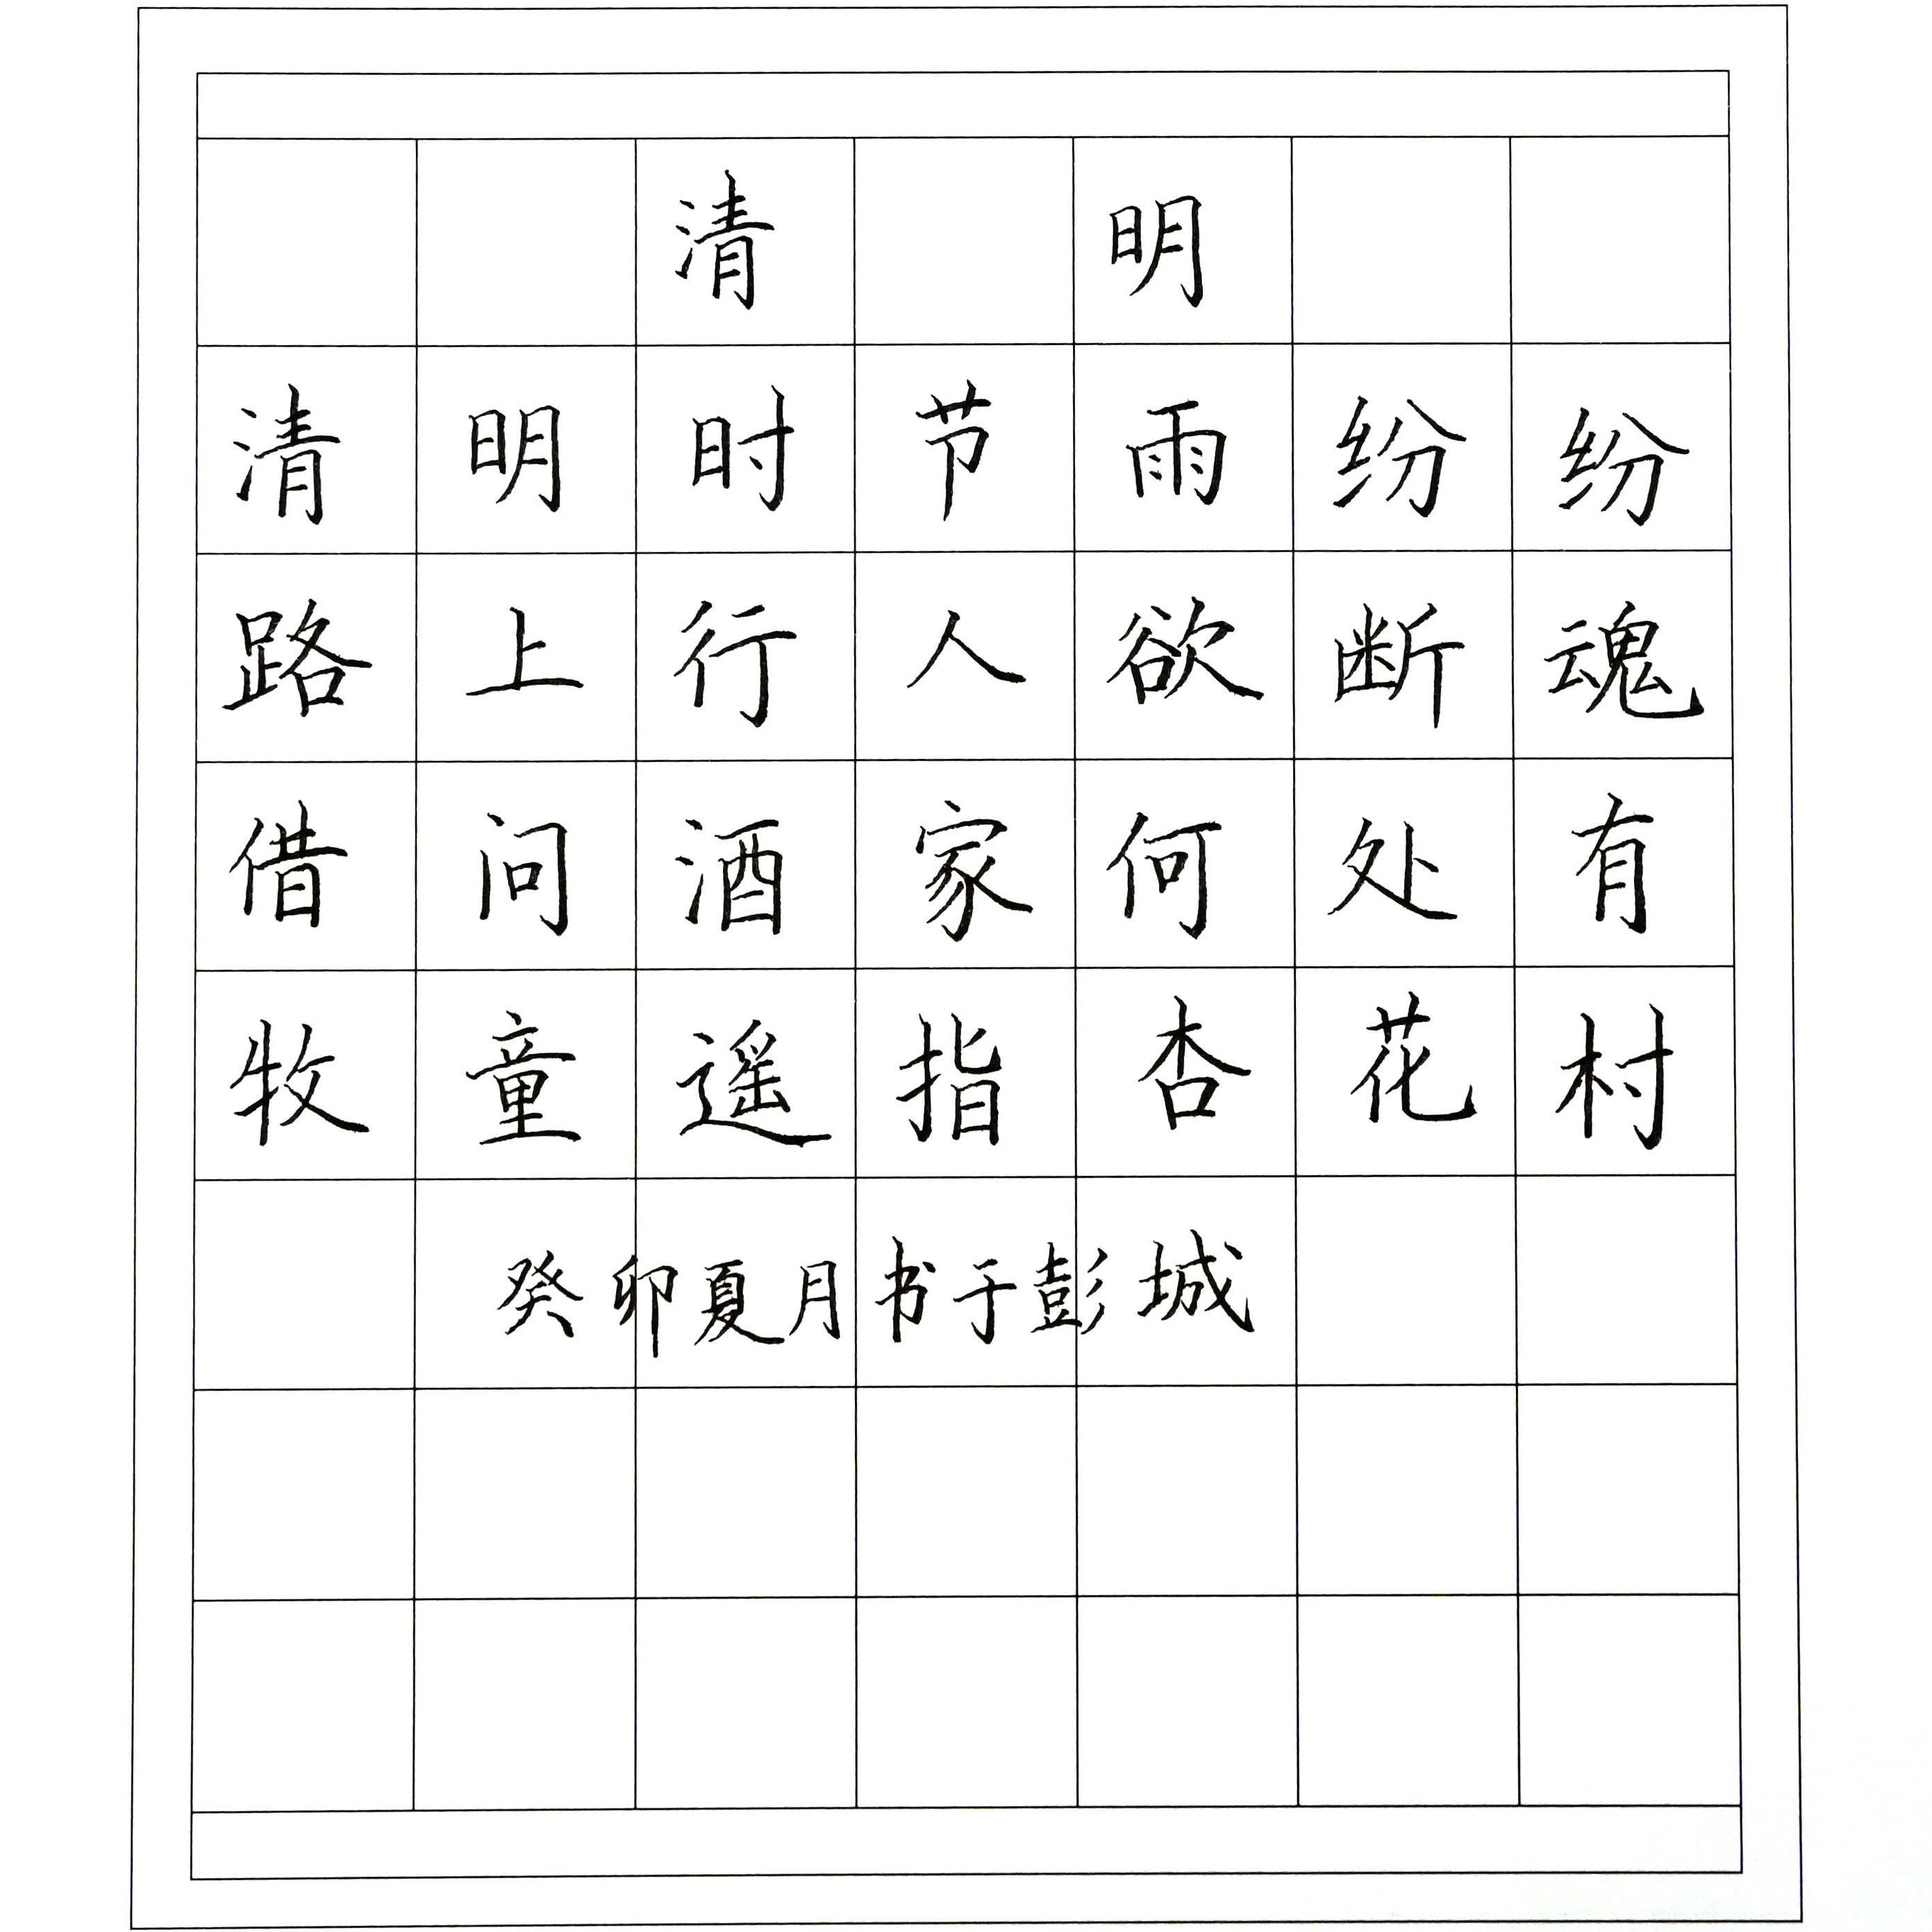 清明
清明时节雨纷纷
路上行人欲断魂
借问酒家何处有
牧童遥指杏花村
癸卯夏月书于彭城